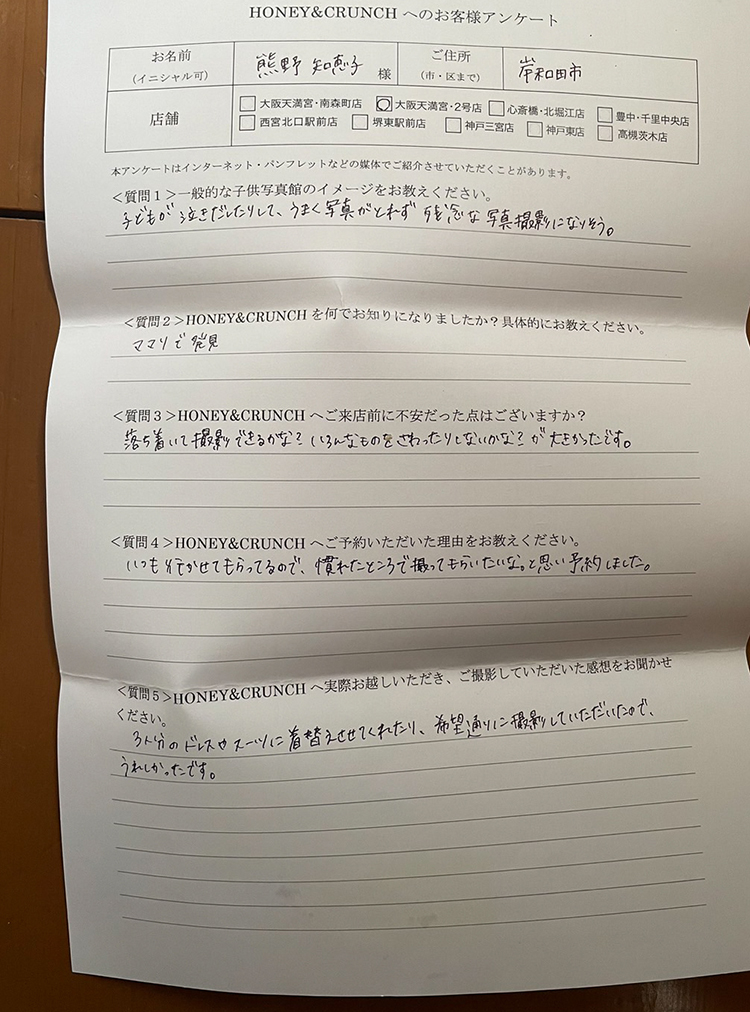 HONEY&CRUNCH へのお客様アンケート
お名前
(イニシャル可)
熊野 知恵子 様
ご住所
(市・区まで)
岸和田市
店舗
□ 大阪天満宮・南森町店 □ 大阪天満宮・2号店 □ 心斎橋・北堀江店 □ 豊中・千里中央店
□ 西宮北口駅前店 □ 堺東駅前店 □ 神戸三宮店 □ 神戸東店 □ 高槻茨木店
本アンケートはインターネット・パンフレットなどの媒体でご紹介させていただくことがあります。
＜質問1＞一般的な子供写真館のイメージをお教えください。
子どもが泣きだしたりして、うまく写真がとれず 残念な写真撮影になりそう。
＜質問2＞HONEY&CRUNCH を何でお知りになりましたか？具体的にお教えください。
ママリで発見
＜質問3＞HONEY&CRUNCH へご来店前に不安だった点はございますか？
落ち着いて撮影できるかな？いろんなものをさわったりしないかな？が大きかったです。
＜質問4＞HONEY&CRUNCH へご予約いただいた理由をお教えください。
いつも行かせてもらってるので、慣れたところで撮ってもらいたいな。と思い予約しました。
＜質問5＞HONEY&CRUNCH へ実際お越しいただき、ご撮影していただいた感想をお聞かせ
ください。
3人分のドレスやスーツに着替えさせてくれたり、希望通りに撮影していただいたので、
うれしかったです。